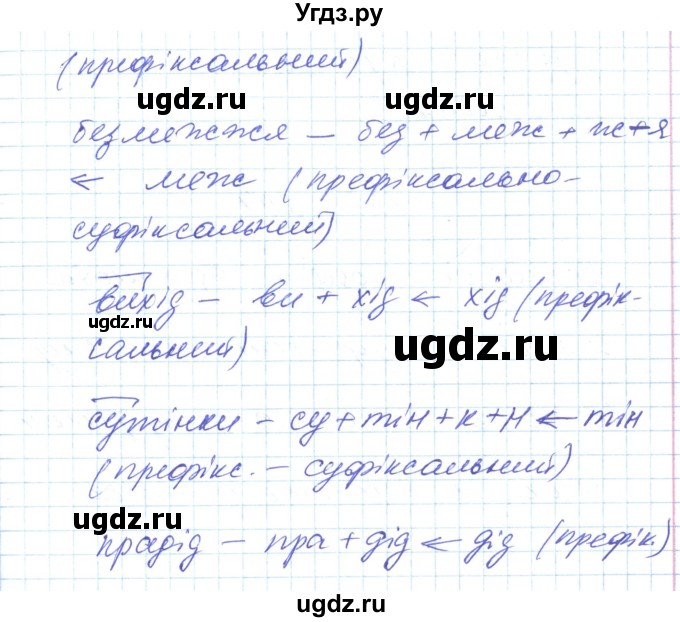 Угдз.ру
(префіксальний)
ugdz.ru ugdz.ru
безмежжя – без + меж + ж+я
← меж (префіксально-
суфіксальний)
вихід – ви + хід ← хід (префік-
ugdz.ru
сальний) ugdz.ru
сутінки – су+тін+к+и ← тін
(префікс. – суфіксальний)
ugdz.ru
прадід – пра + дід ← дід (префік.)
ugdz.ru